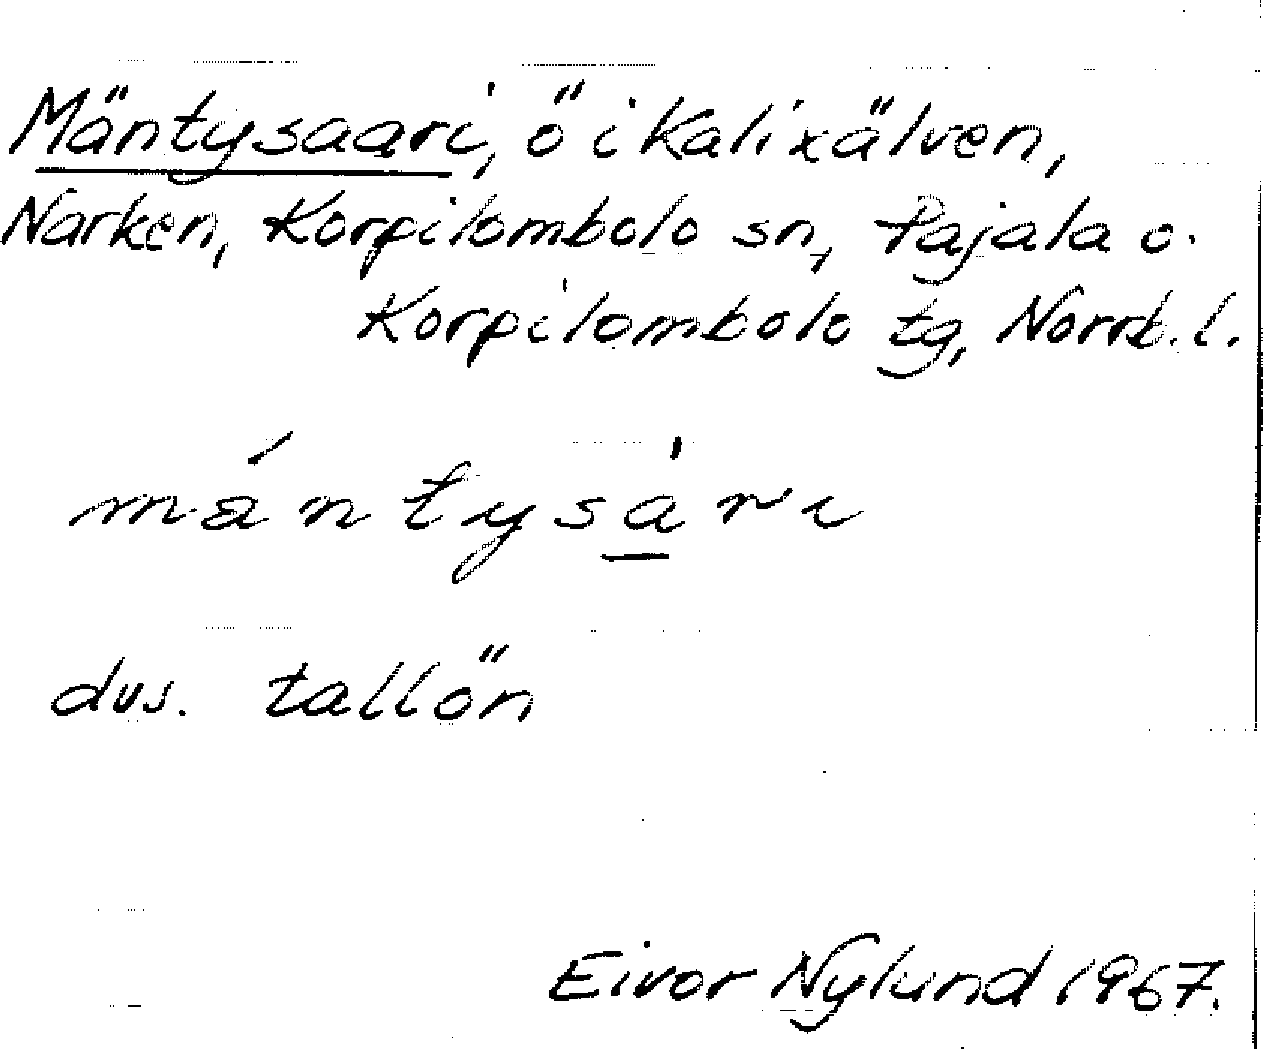 Mäntysaari, ö i Kalixälven,
Narken, Korpilombolo sn, Pajala o.
Korpilombolo tg, Norrb. l.
mántysàri
dvs. tallön
Eivor Nylund 1967.